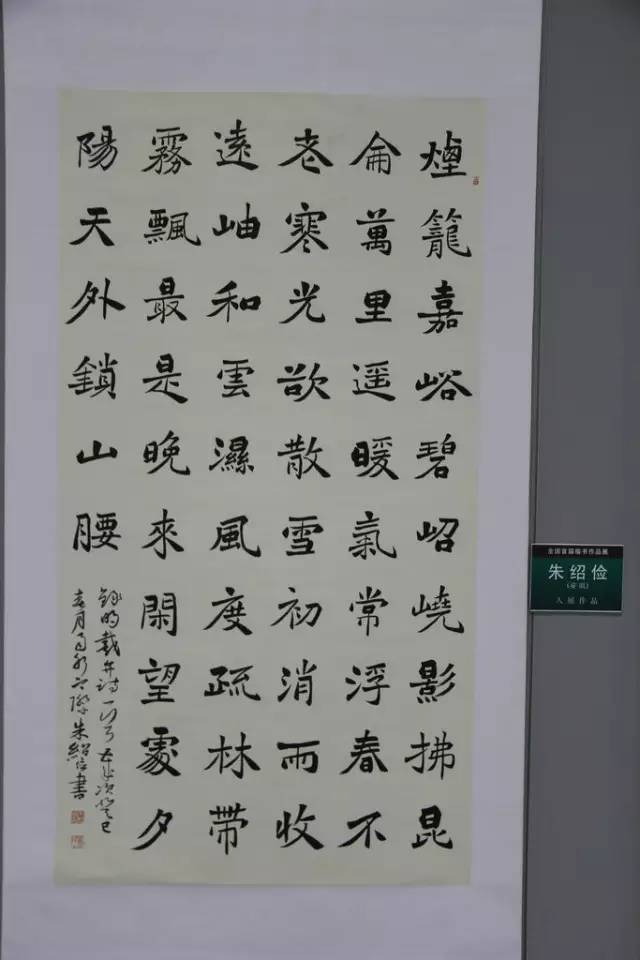 煙籠嘉峪碧岧嶢影拂昆
侖萬里遥暖氣常浮春不
老寒光欲散雪初消雨收
遠岫和雲濕風度疏林帶
霧飄最是晚來閑望處夕
陽天外鎖山腰
錄明戴弁詩一首次癸巳
春月之際朱紹俭書
全国首届楷书作品展
朱绍俭
入展作品